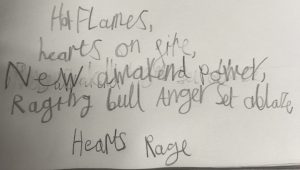 Hot Flames,
hearts on fire,
New awakend power,
Raging bull Anger set ablaze,
Hearts Rage